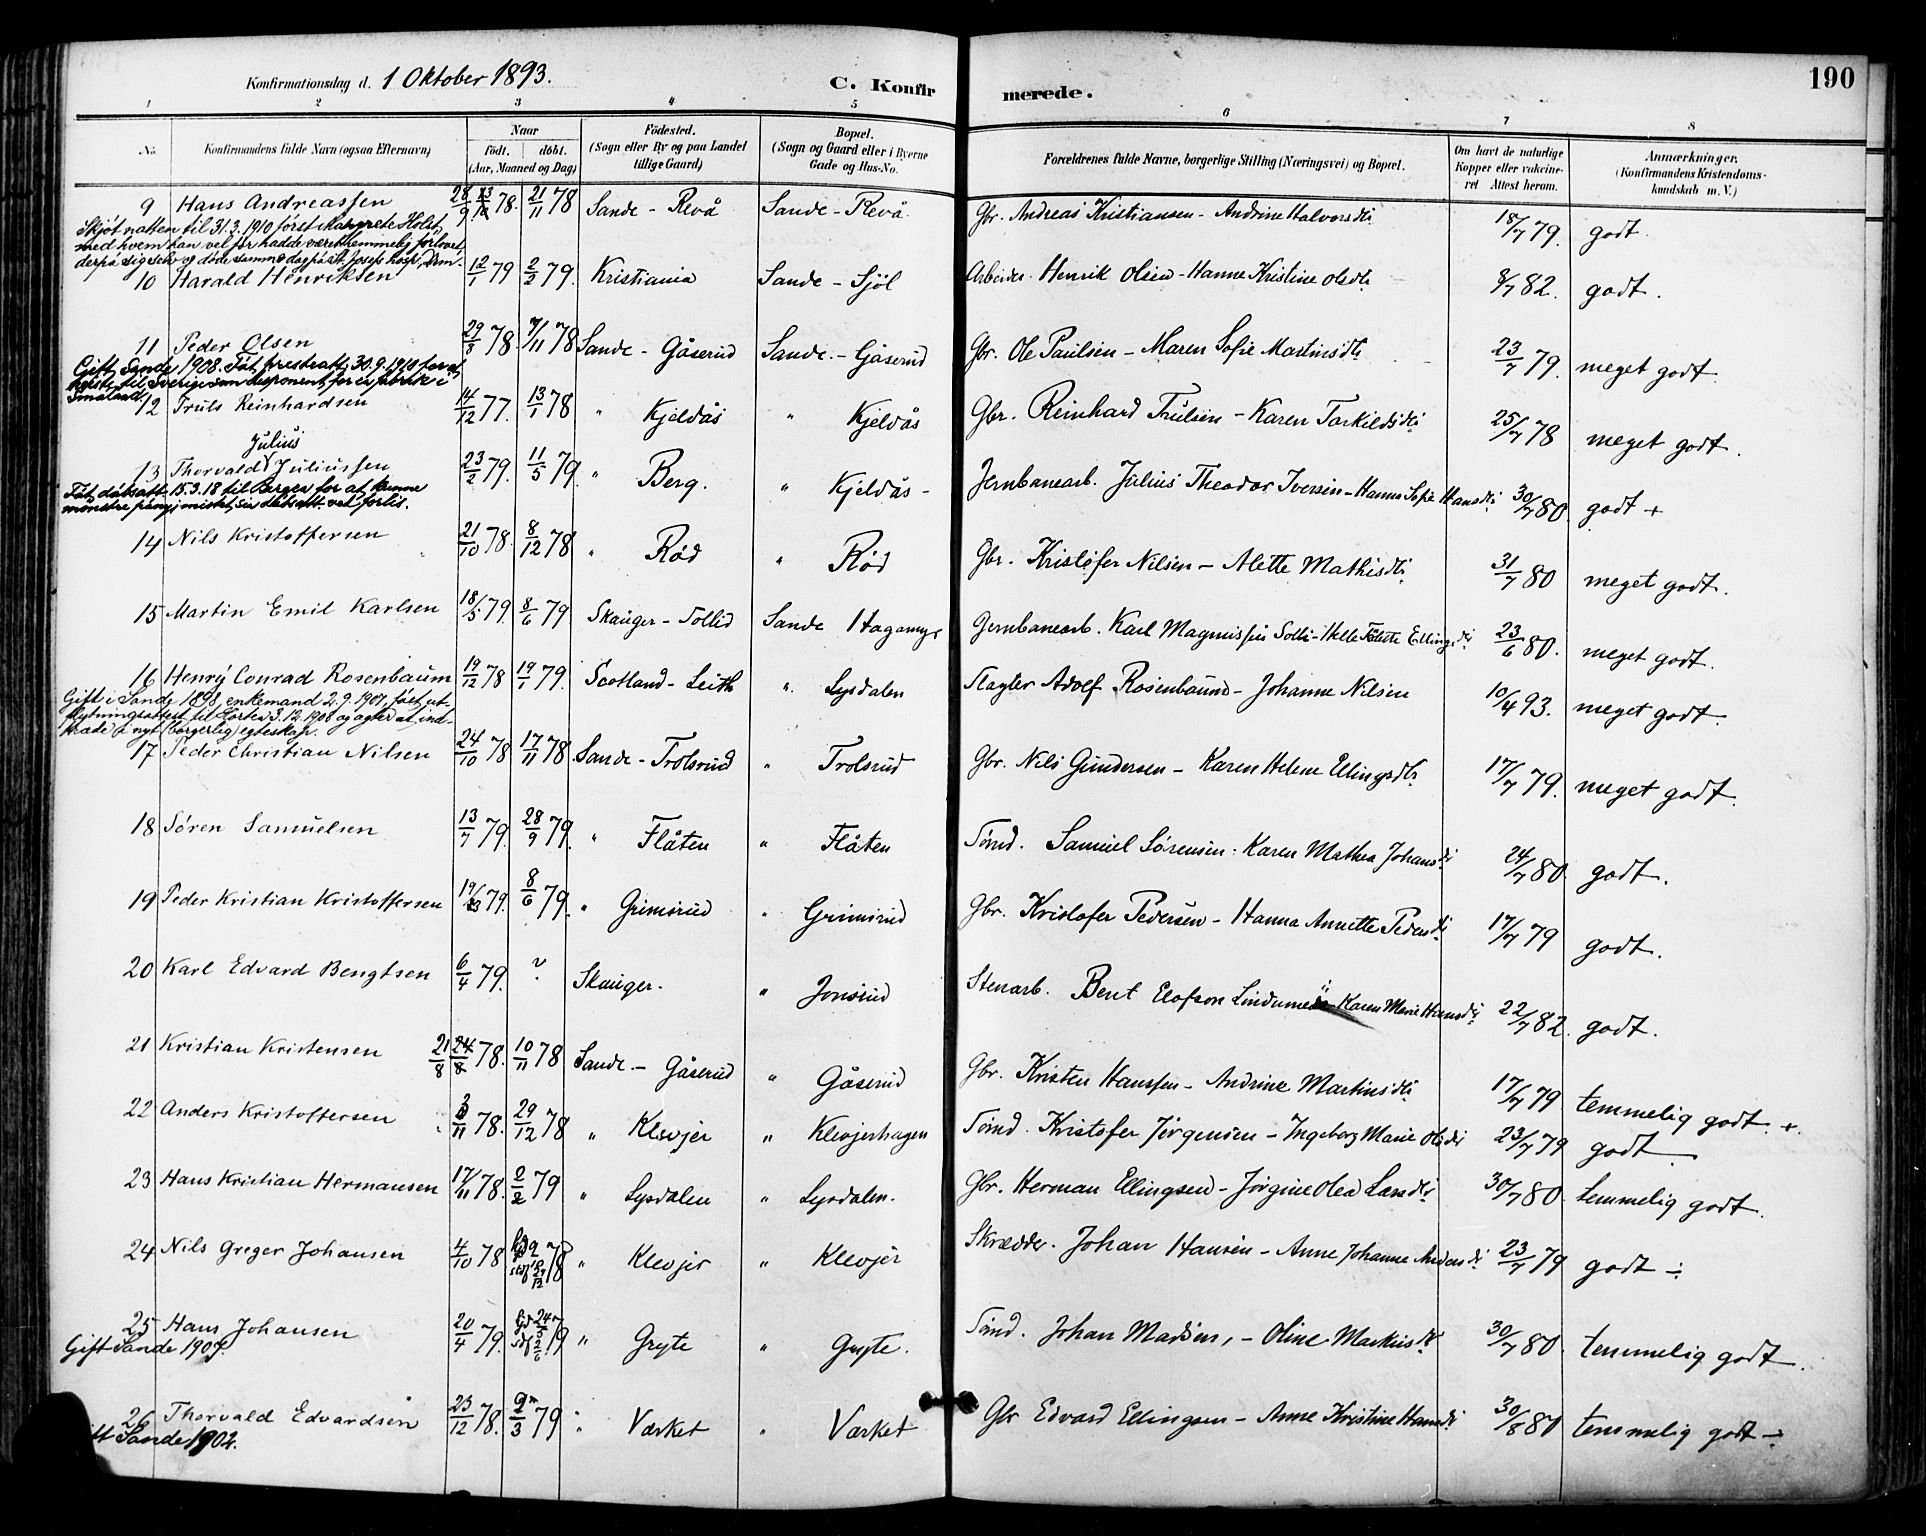 Konfirmationsdag d. 1 Oktober 1893. C. Konfirmerede. 190
1 2 3 4 5 6 7 8
No. Konfirmandens fulde Navn (ogsaa Efternavn) Naar födt. döbt. (Aar, Maaned og Dag) Födested. (Sogn eller By og paa Landet tillige Gaard) Bopæl. (Sogn og Gaard eller i Byerne Gade og Hus-No. Forældrenes fulde Navne, borgerlige Stilling (Næringsvei) og Bopæl. Om havt de naturlige Kopper eller vakcineret Attest herom. Anmærkninger. (Konfirmandens Kristendomskundskab m. V.)
9 Hans Andreassen 28/9 78. 21/11 78 Sande - Revå Sande - Revå. Gbr. Andreas Kristiansen - Andrine Halvorsdtr 18/7 79. godt.
Skjøt natten til 31.3.1910 først Margrete Holst,
med hvem han vel før hadde været hemmelig forlovet
derpå sig selv og døde samme dag på St. Josefs hosp., Drm.
10 Harald Henriksen 12/1 79 2/2 79. Kristiania Sande - Sjöl Arbeider Henrik Olsen - Hanne Kristine Olsdtr 8/7 82. godt.
11 Peder Olsen 29/8 78. 7/11 78 Sande - Gåserud Sande - Gåserud Gbr. Ole Paulsen - Maren Sofie Martinsdtr 23/7 79. meget godt.
Gift, Sande 1908. Fåt prestatt. 30.9.1918 for at
reise til Sverige som disponent for en fabrik i
Småland
12 Truls Reinhardsen 14/12 77. 13/1 78 " Kjeldås " Kjeldås Gbr. Reinhard Trulsen - Karen Torkildsdtr 25/7 78 meget godt.
Julius
13 Thorvald Juliussen 23/2 79. 11/5 79. " Berg. " Kjeldås - Jernbanearb. Julius Theodor Iversen - Hanna Sofie Hansdtr 30/7 80. godt +
Fåt dåbsatt. 15.3.18 til Bergen for at kunne
mønstre påny; mistet sin dåbsatt. ved forlis.
14 Nils Kristoffersen 21/10 78. 8/12 78 " Rød " Rød Gbr. Kristofer Nilsen - Alette Mathisdtr 31/7 80 meget godt.
15 Martin Emil Karlsen 18/5 79. 8/6 79 Skauger - Tollid Sande Hagamyr Jernbanearb. Karl Magnussen Solli - Helle Tolette Ellingsdtr 23/6 80. meget godt.
16 Henry Conrad Rosenbaum 19/12 78 19/1 79. Scotland - Leith " Lysdalen Slagter Adolf Rosenbaum - Johanne Nilsen 10/4 93. meget godt.
Gift i Sande 1898, enkemand 2.9.1907, fået ut-
flytningsattest til Horten 3.12.1908 og agter at ind-
træde i nyt (borgerlig) egteskap.
17 Peder Christian Nilsen 24/10 78 17/11 78 Sande - Trolsrud " Trolsrud Gbr. Nils Gundersen - Karen Helene Ellingsdtr 17/7 79. meget godt.
18 Søren Samuelsen 13/7 79. 28/9 79. " Flåten " Flåten Tømd. Samuel Sørensen - Karen Mathea Johansdtr 24/7 80. godt.
19 Peder Kristian Kristoffersen 19/3 79. 8/6 79. " Grimsrud " Grimsrud Gbr. Kristofer Pedersen - Hanna Annette Pedersdtr 17/7 79 godt.
20 Karl Edvard Bengtsen 6/4 79. ? Skauger. " Jonsrud Stenarb. Bent Elofson - Karen Marie Hansdtr 22/7 82. godt.
21 Kristian Kristensen 21/8 24/8 78. 10/11 78 Sande - Gåserud " Gåserud Gbr. Kristen Hanssen - Andrine Martinsdtr 17/7 79 temmelig godt. +.
22 Anders Kristoffersen 3/11 78. 29/12 78 " Klevjer " Klevjerhagen Tømd. Kristofer Jörgensen - Ingeborg Marie Olsdtr 23/7 79 godt.
23 Hans Kristian Hermansen 17/11 78. 2/2 79 " Lysdalen " Lysdalen. Gbr. Herman Ellingsen - Jörgine Olea Larsdtr 30/7 80. temmelig godt.
24 Nils Greger Johansen 4/10 78 78 " Klevjer " Klevjer Skrædder. Johan Hansen - Anne Johanne Andersdtr 23/7 79 godt ÷
25 Hans Johansen 20/4 79. 79 " Gryte " Gryte. Tømd. Johan Madsen, - Oline Markusdtr 30/7 80. temmelig godt.
Gift Sande 1907.
26 Thorvald Edvardsen 23/12 78. 9/3 79 " Værket " Værket Gbr Edvard Ellingsen - Anne Kristine Hansdtr 30/8 80 temmelig godt ÷
Gift Sande 1902.